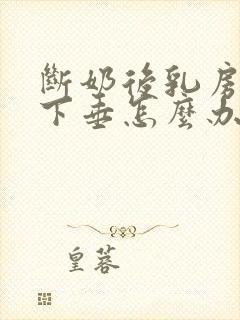 斷奶後乳房
下垂怎麼办
皇蓉